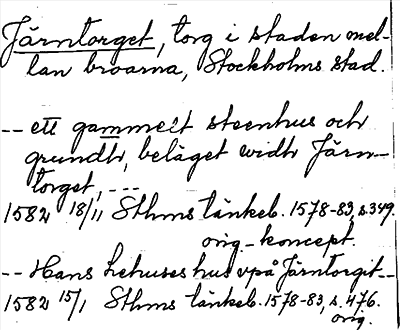 Järntorget, torg i staden mel-
lan broarna, Stockholms stad.
-- ett gammelt steenhus och
grundh, beläget widh Järn-
torget, ---
1582 18/11 Sthms tänkeb. 1578-83, s. 349.
orig.-koncept.
-- Hans Lehuses hus vpå Järntorgit --
1582 15/1 Sthms tänkeb. 1578-83, s. 476.
orig.